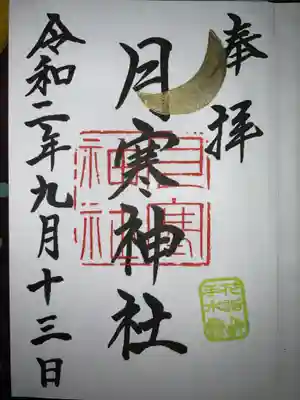 奉拝
月寒神社
月寒神社
令和二年九月十三日